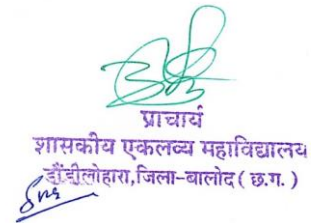 प्राचार्य
शासकीय एकलव्य महाविद्यालय
डौंडीलोहारा,जिला-बालोद ( छ.ग. )